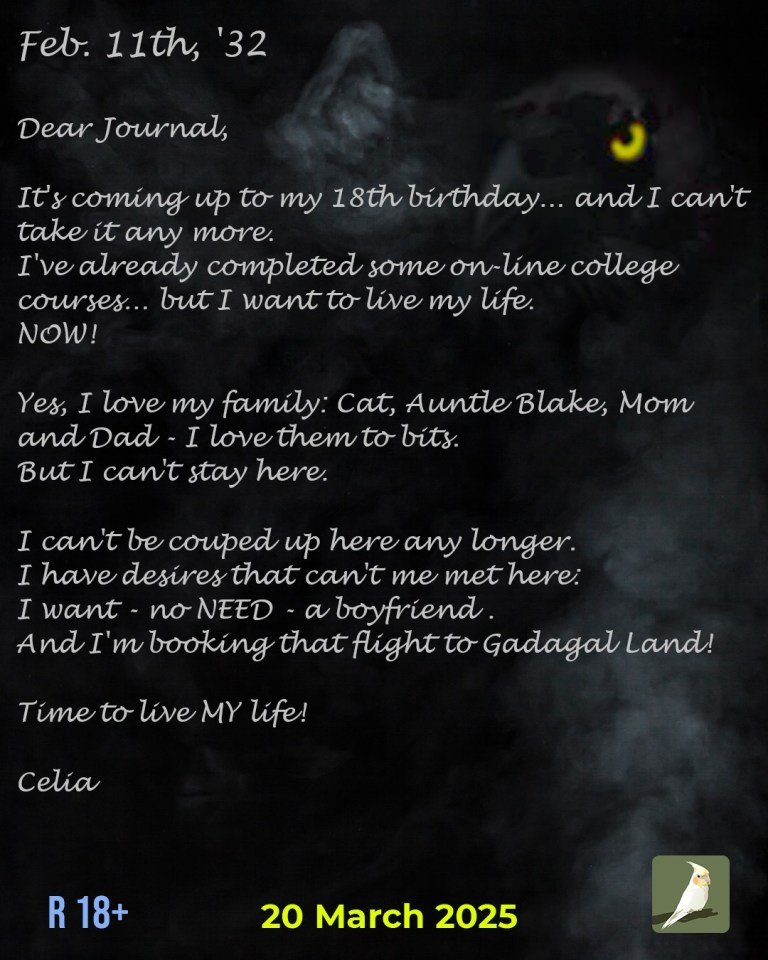 Feb. 11th, '32
Dear Journal,
It's coming up to my 18th birthday... and I can't
take it any more.
I've already completed some on-line college
courses... but I want to live my life.
NOW!
Yes, I love my family: Cat, Auntle Blake, Mom
and Dad - I love them to bits.
But I can't stay here.
I can't be couped up here any longer.
I have desires that can't me met here:
I want - no NEED - a boyfriend .
And I'm booking that flight to Gadagal Land!
Time to live MY life!
Celia
R 18+
20 March 2025